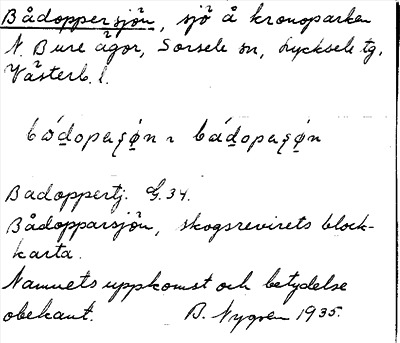 Bådoppersjön, sjö å kronoparken
N. Bure ägor, Sorsele sn, Lycksele tg,
Västerb. l.
Badoppertj. G. 34.
Bådopparsjön, skogsrevirets block-
karta.
Namnets uppkomst och betydelse
obekant. B. Nygren 1935.